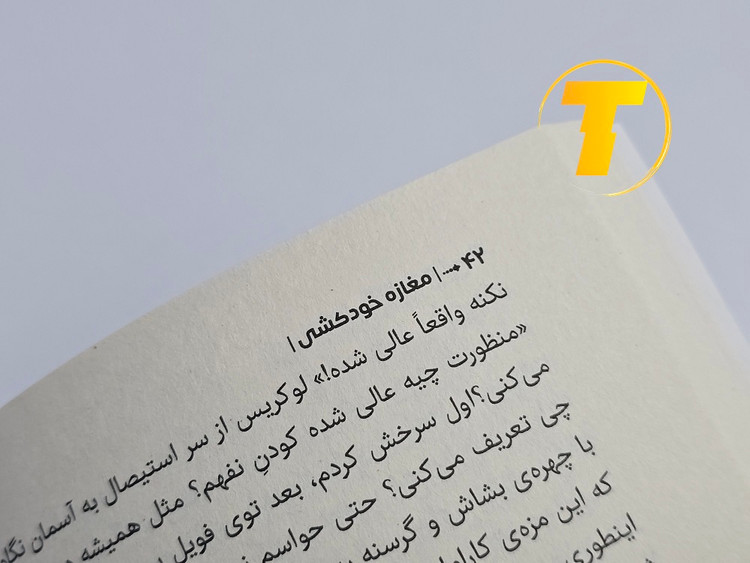 T
۴۲ | مغازه خودکشی |
نکنه واقعاً عالی شده!» لوکریس از سر استیصال به آسمان
«منظورت چیه عالی شده کودنِ نفهم؟ مثل همیشه
می‌کنی؟ اول سرخش کردم، بعد توی فویل
چی تعریف می‌کنی؟ حتی حواسم
با چهره‌ی بشاش و گرسنه
که این مزه‌ی
اینطوری